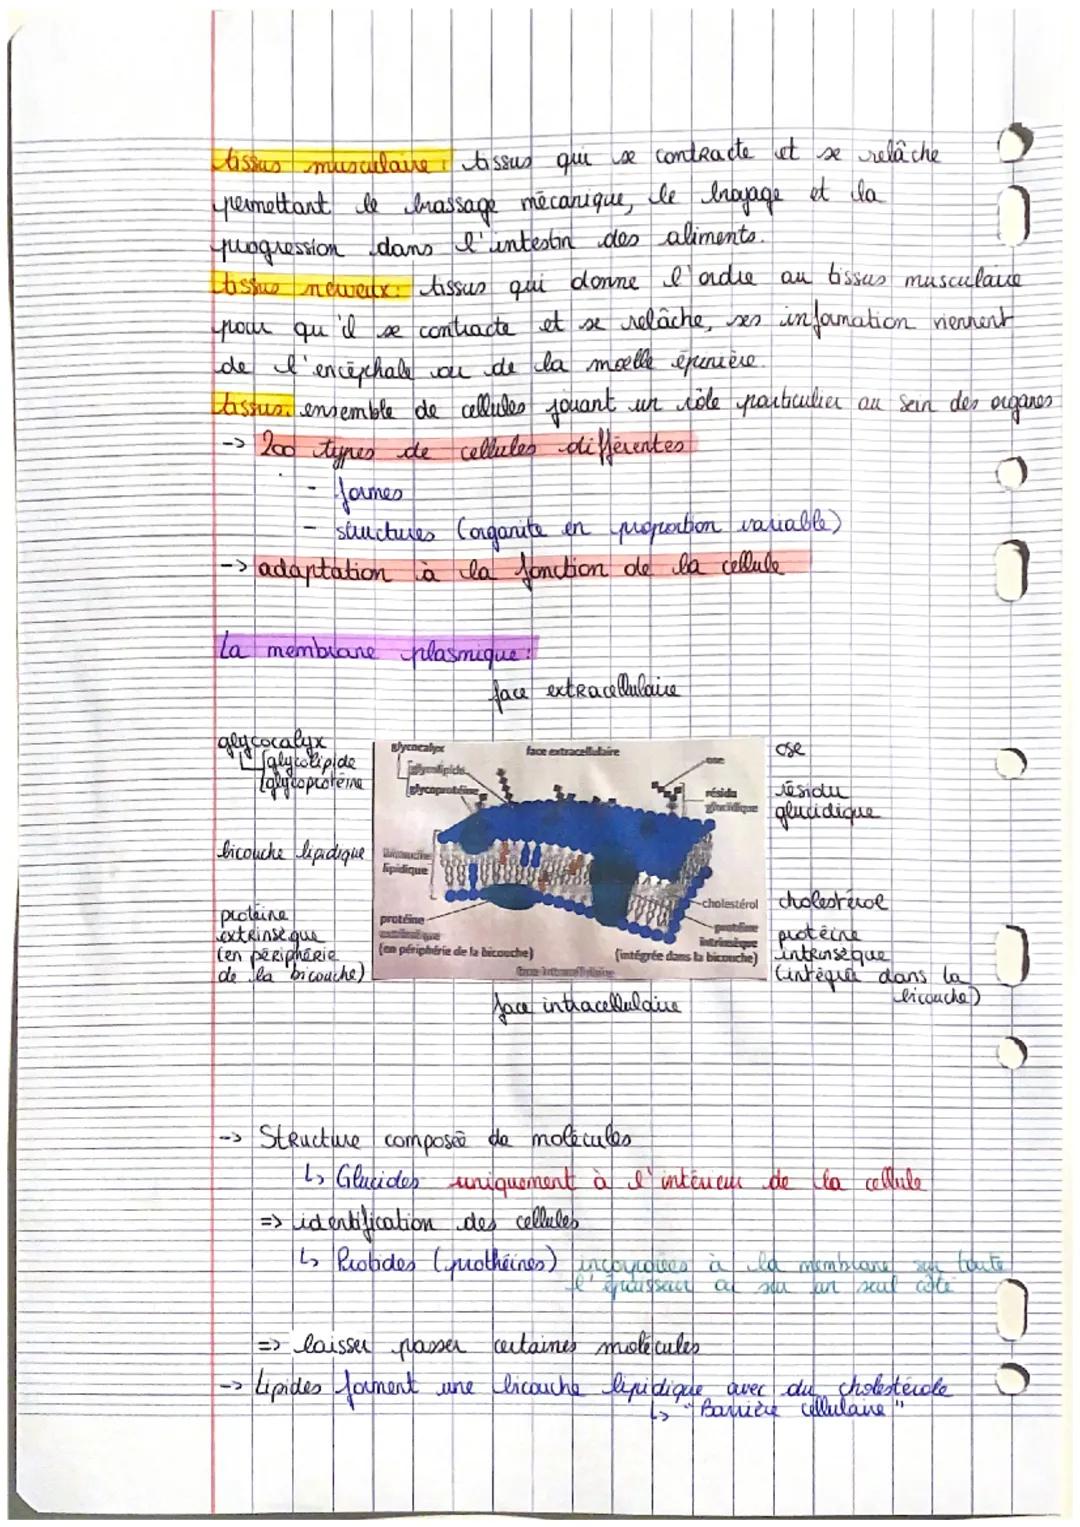 tissus musculaire : tissus qui se contracte et se relâche
permettant le brassage mécanique, le broyage et la
progression dans l'intestin des aliments.
tissus nerveux : tissus qui donne l'ordre au tissus musculaire
pour qu'il se contracte et se relâche, ses information viennent
de l'encéphale ou de la moelle épinière.
tissus : ensemble de cellules jouant un rôle particulier au sein des organes
-> 200 types de cellules différentes
- formes
- structures (organite en proportion variable)
-> adaptation à la fonction de la cellule
La membrane plasmique :
face extracellulaire
glycocalyx
glycolipide
glycoprotéine
bicouche lipidique
protéine
extrinsèque
(en périphérie
de la bicouche)
glycocalyx
face extracellulaire
glycolipide
glycoprotéine
ose
résidu
glucidique
bicouche
lipidique
cholestérol
protéine
extrinsèque
(en périphérie de la bicouche)
protéine
intrinsèque
(intégrée dans la bicouche)
face intracellulaire
ose
résidu
glucidique
cholestérol
protéine
intrinsèque
(intégré dans la
bicouche)
face intracellulaire
-> Structure composée de molécules
↳ Glucides uniquement à l'intérieur de la cellule
=> identification des cellules
↳ Protides (prothéines) incorporées à la membrane sur toute
l'épaisseur ou sur un seul côté
=> laisser passer certaines molécules
-> Lipides forment une bicouche lipidique avec du cholestérole
↳ "Barrière cellulaire"